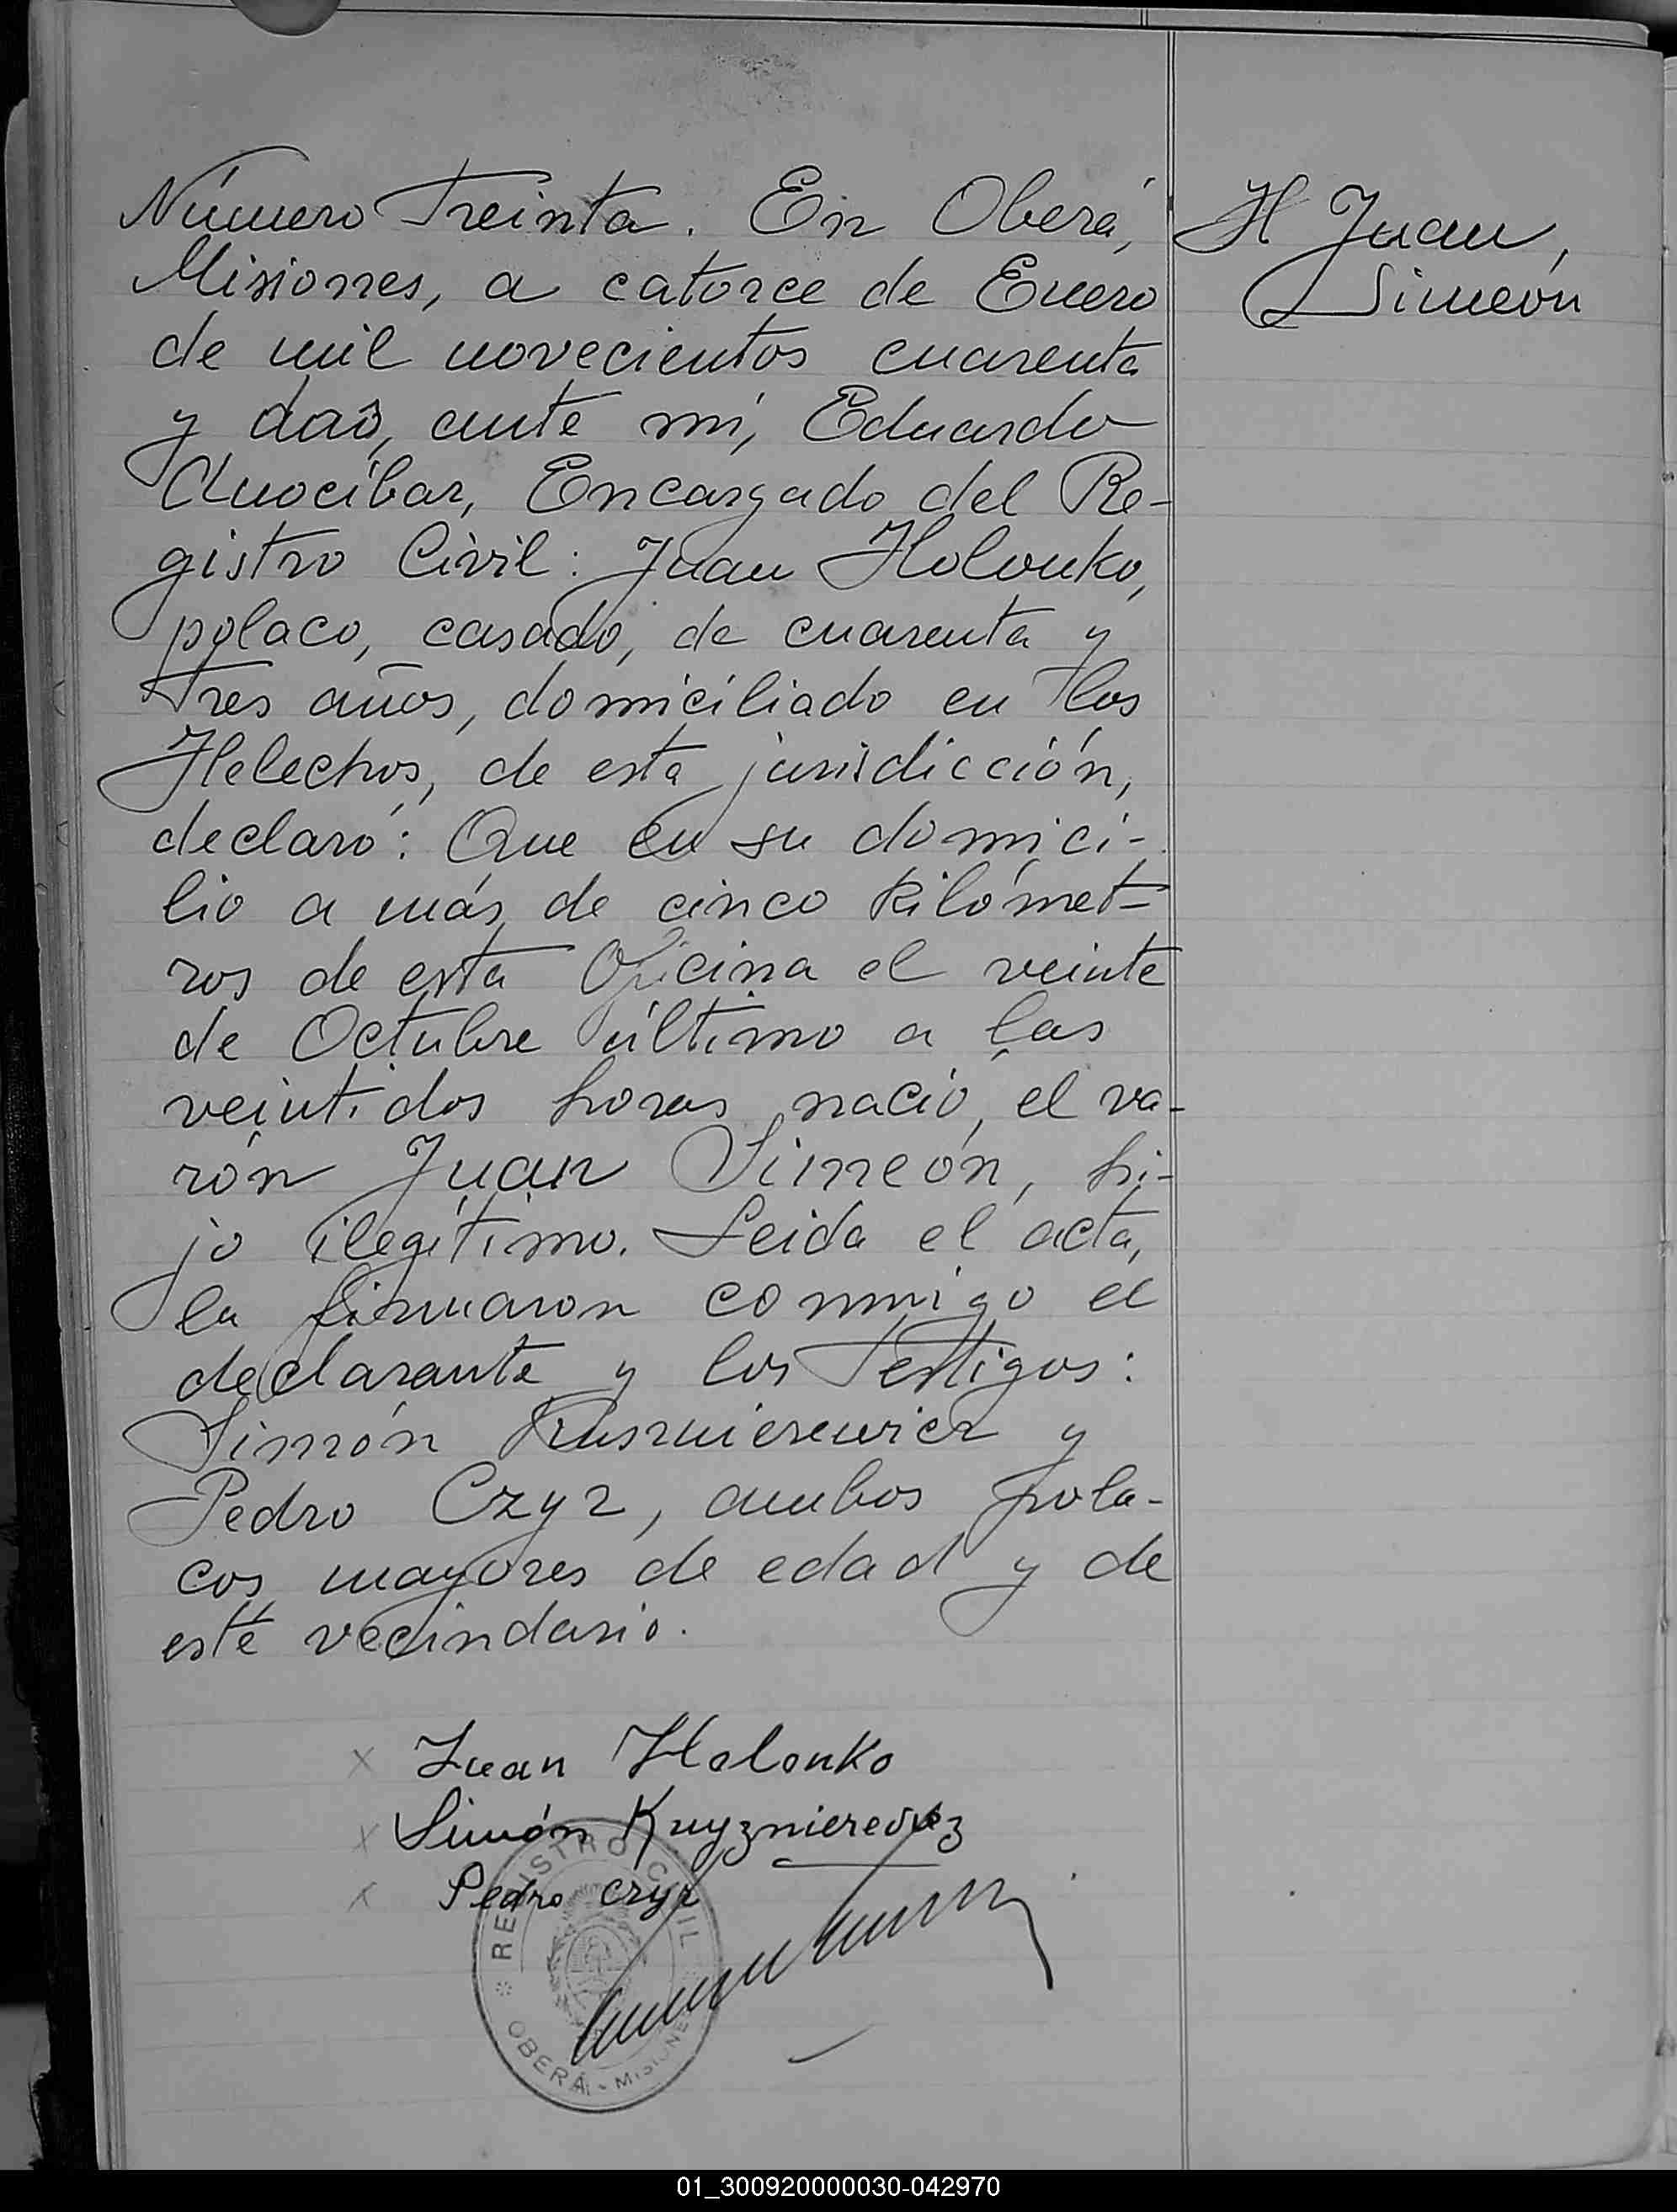 Número Treinta. En Oberá,
Misiones, a catorce de Enero
de mil novecientos cuarenta
y dos, ante mí, Eduardo
Anocíbar, Encargado del Re-
gistro Civil: Juan Holonko,
polaco, casado, de cuarenta y
tres años, domiciliado en los
Helechos, de esta jurisdicción,
declaró: Que en su domici-
lio a más de cinco kilómet-
ros de esta Oficina el veinte
de Octubre último a las
veintidos horas nació el va-
rón Juan Simeón, hi-
jo ilegítimo. Leida el acta,
la firmaron conmigo el
declarante y los Testigos:
Simón
y
Pedro Czyz, ambos pola-
cos mayores de edad y de
este vecindario.
H Juan,
Simeón
x Juan Holonko
x Simón
x Pedro Czyz
REGISTRO CIVIL
OBERÁ - MISIONES
01_300920000030-042970